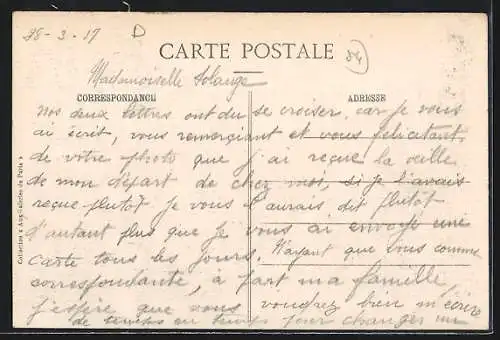 28-3-17 D
CARTE POSTALE
54
Mademoiselle Solange
CORRESPONDANCE
ADRESSE
Nos deux lettres ont du se croiser, car je vous
ai écrit, vous remerciant et vous félicitant
de votre photo que j'ai reçue la veille
de mon départ de chez moi, si je l'avais
reçue plutôt je vous l'aurais dit plutôt
d'autant plus que je vous ai envoyé une
carte tous les jours. N'ayant que vous comme
correspondante, à part ma famille
j'espère que vous voudrez bien m'écrire
de temps en temps pour changer un